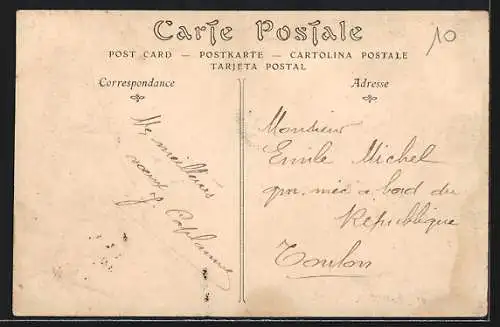 Carte Postale
10
POST CARD — POSTKARTE — CARTOLINA POSTALE
TARJETA POSTAL
Correspondance
Adresse
meilleurs
vœux
Monsieur
Emile Michel
a bord du
République
Toulon